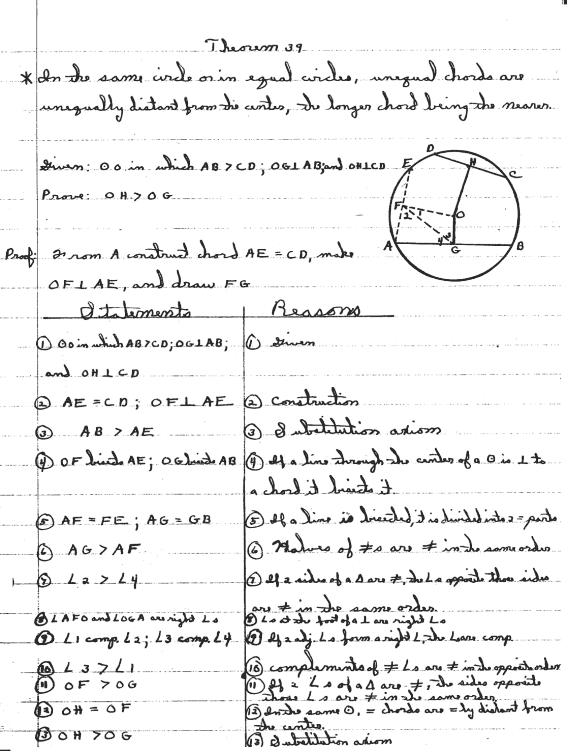 Theorem 39
* In the same circle or in equal circles, unequal chords are
unequally distant from the center, the longer chord being the nearer.
Given: ⊙O in which AB > CD; OG⊥AB; and OH⊥CD
Prove: OH > OG
D
H
E
C
F
2 1
O
4 3
A
G
B
Proof: From A construct chord AE = CD, make
OF ⊥ AE, and draw FG
Statements | Reasons
① ⊙O in which AB>CD; OG⊥AB; ① Given
and OH ⊥ CD
② AE = CD; OF ⊥ AE ② Construction
③ AB > AE ③ Substitution axiom
④ OF bisects AE; OG bisects AB ④ If a line through the center of a ⊙ is ⊥ to
a chord it bisects it.
⑤ AF = FE; AG = GB ⑤ If a line is bisected, it is divided into 2 = parts
⑥ AG > AF ⑥ Halves of ≠s are ≠ in the same order
⑦ ∠2 > ∠4 ⑦ If 2 sides of a Δ are ≠, the ∠s opposite those sides
are ≠ in the same order.
⑧ ∠AFO and ∠OGA are right ∠s ⑧ ∠s at the foot of a ⊥ are right ∠s
⑨ ∠1 comp. ∠2; ∠3 comp. ∠4 ⑨ If 2 adj. ∠s form a right ∠, the ∠s are comp.
⑩ ∠3 > ∠1 ⑩ complements of ≠ ∠s are ≠ in the opposite order
⑪ OF > OG ⑪ If 2 ∠s of a Δ are ≠, the sides opposite
those ∠s are ≠ in the same order.
⑫ OH = OF ⑫ In the same ⊙, = chords are =ly distant from
the center.
⑬ OH > OG ⑬ Substitution axiom